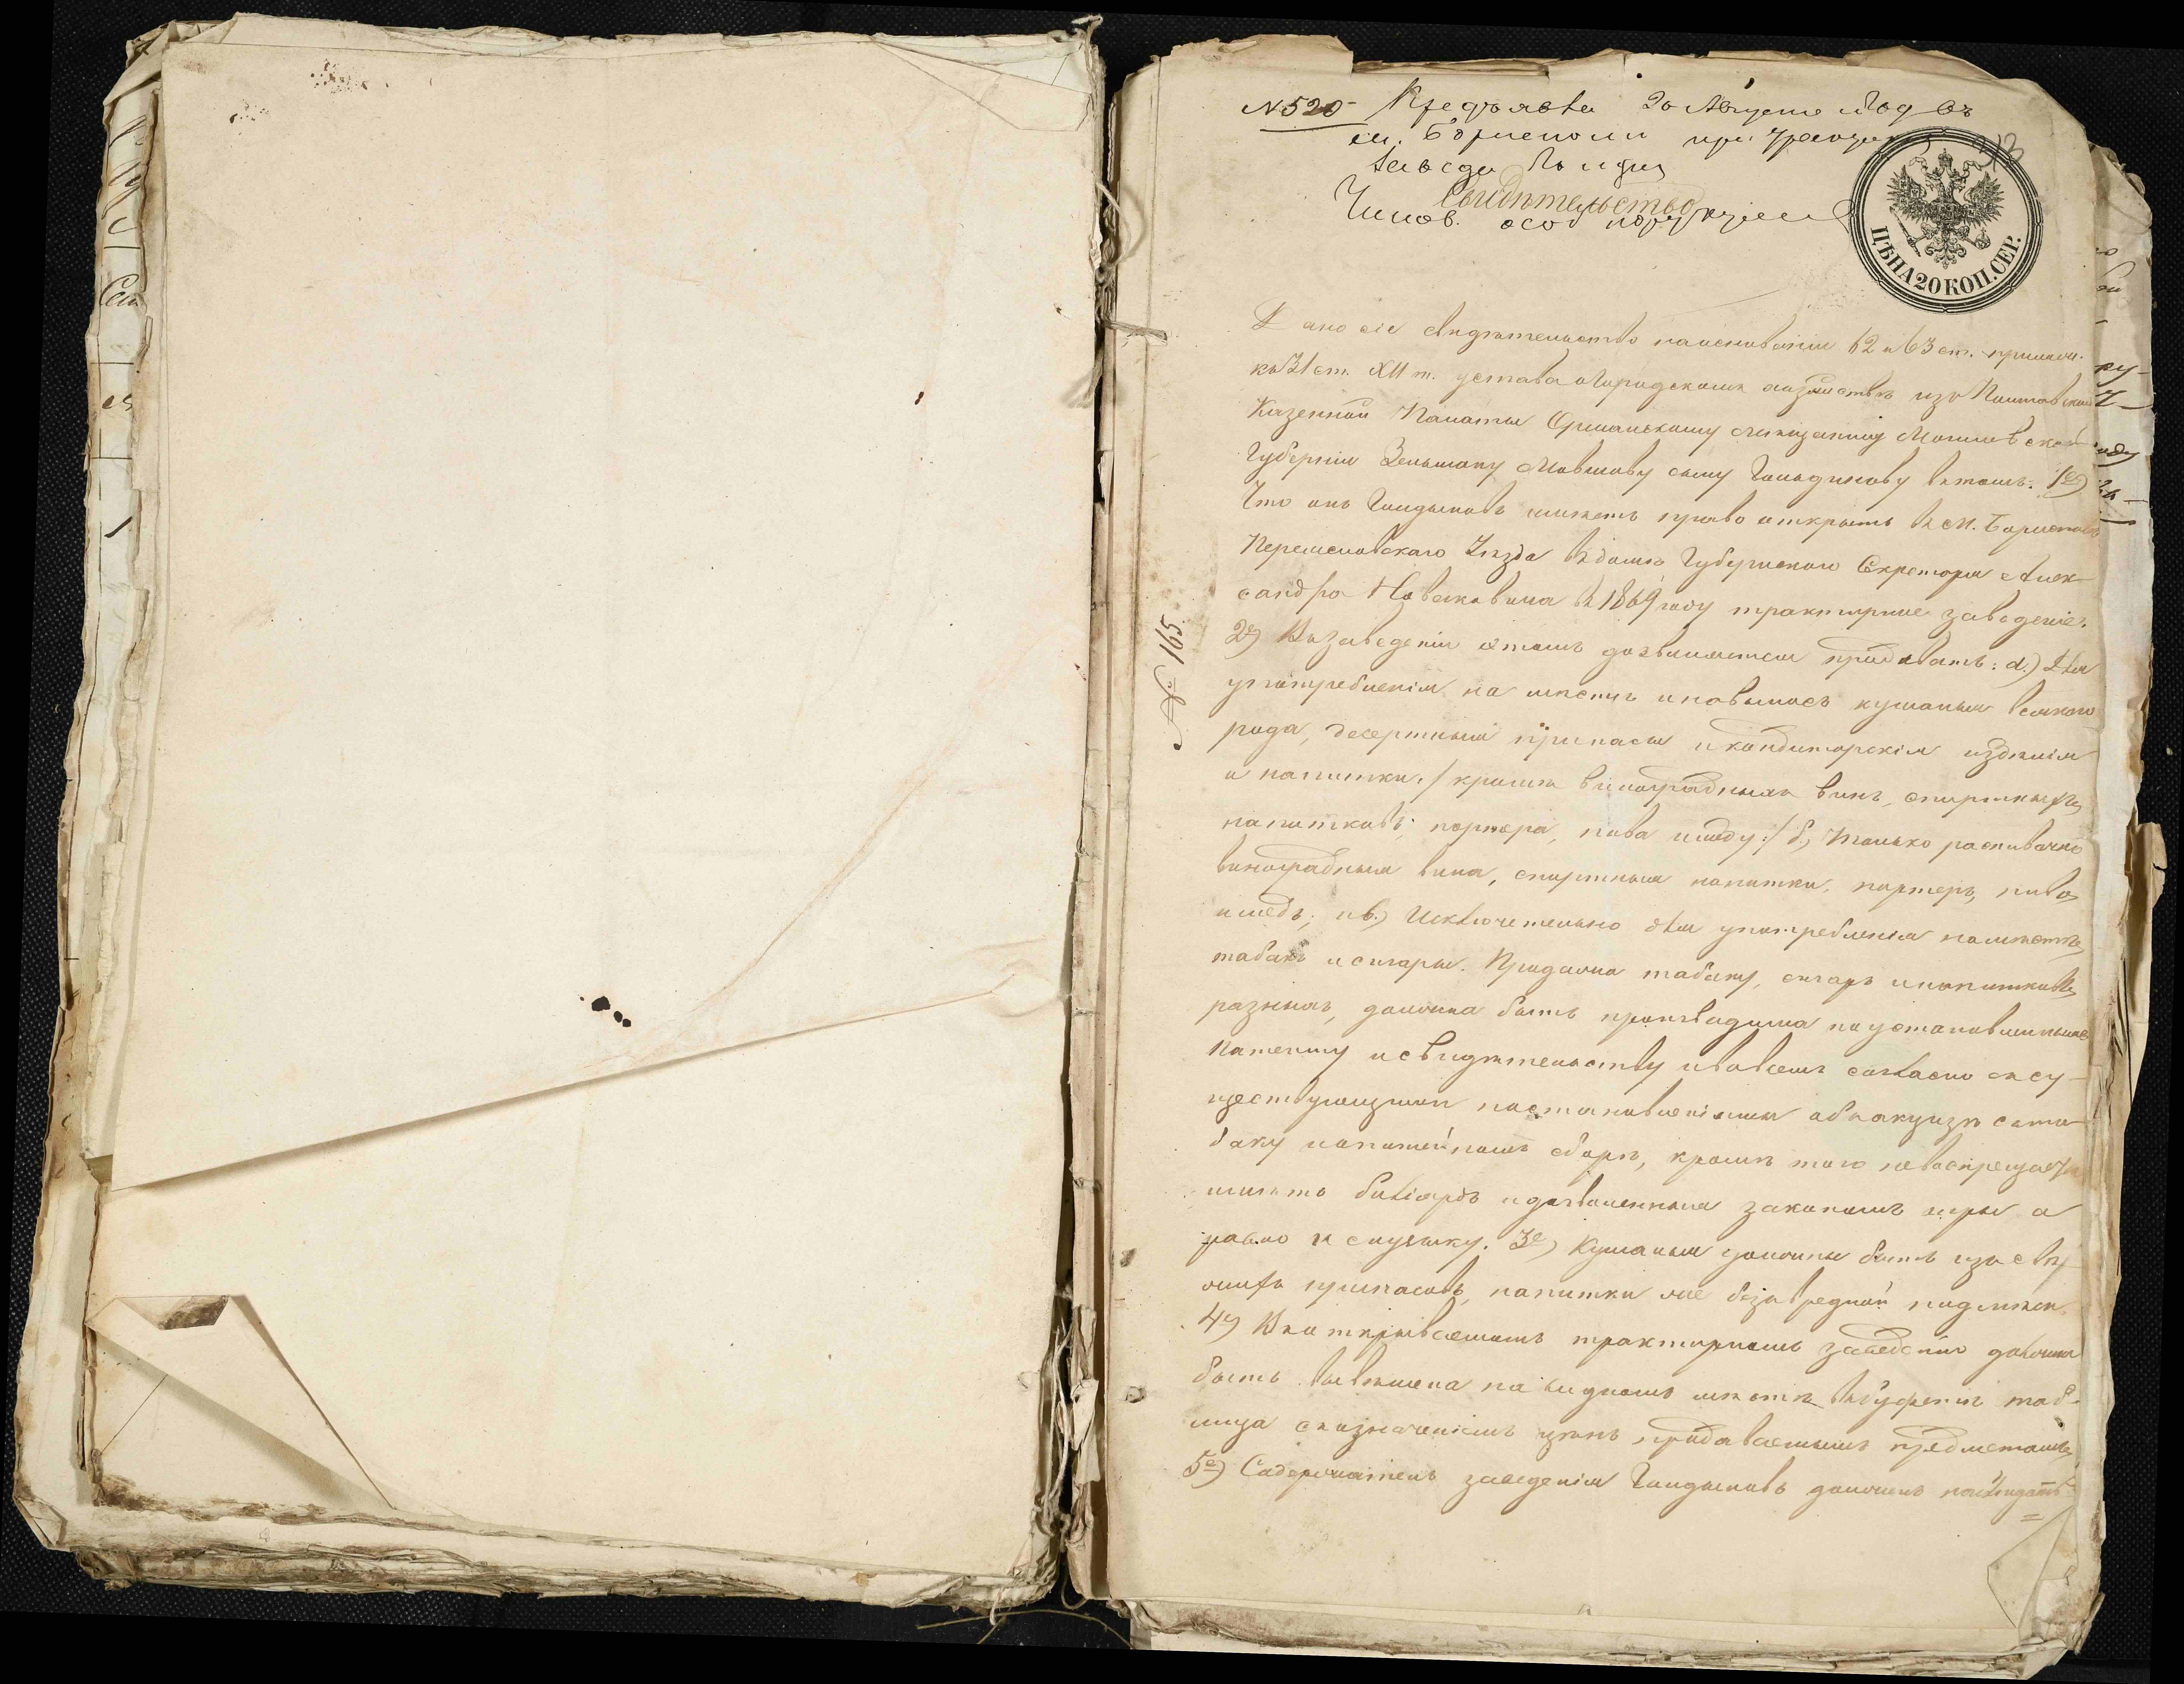 № 520 Предъявле 20 Августа
м. Борисполи при
Чинов. особ
Свидѣтельство
ЦѢНА 20 КОП. СЕР.
Дано сіе свидѣтельство на основаніи 62 и 63 ст. примѣч.
къ 31 ст. XII т. устава о городскомъ хозяйствѣ изъ Полтавской
Казенной Палаты Оршанскому мѣщанину Могилевской
Губерніи Зельману Мовшову сыну въ томъ: 1е)
Что онъ имѣетъ право открыть въ м. Борисполѣ
Переяславскаго Уѣзда въ домѣ Губернскаго Секретаря Алек-
сандра въ 1869 году трактирное заведеніе.
2е) Въ заведеніи этомъ дозволяется продавать: а.) Для
употребленія на мѣстѣ и на выносъ кушанья всякаго
рода, десертныя припасы и кондиторскія издѣлія
и напитки. /кромѣ виноградныхъ винъ, спиртныхъ
напитковъ, портера, пива и меду:/ б.) только распивочно
виноградныя вина, спиртныя напитки, портеръ, пиво
и медъ; и в.) Исключительно для употребленія на мѣстѣ
табакъ и сигары. Продажа табаку, сигаръ и напитковъ
разныхъ, должна быть производима по установленнымъ
патенту и свидѣтельству и во всемъ согласно съ су-
ществующими постановленіями объ акцизѣ съ та-
баку и о питейномъ сборѣ, кромѣ того не воспрещается
имѣть биліярдъ и дозволенныя закономъ игры а
равно и музыку. 3е) Кушанья должны быть изъ свѣ
жихъ припасовъ, напитки же безъ вредной подмѣси.
4е) Въ открываемомъ трактирномъ заведеніи должна
быть вывѣшена на видномъ мѣстѣ въ буфетѣ таб-
лица съ означеніемъ цѣнъ продаваемымъ предметамъ
5е) Содержатель заведенія долженъ наблюдать
№ 165